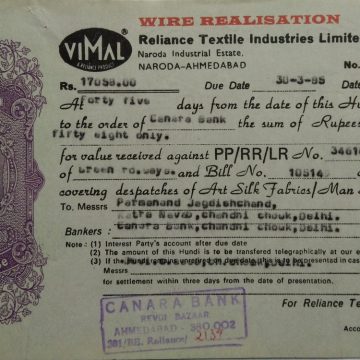 WIRE REALISATION
VIMAL
A RELIANCE PRODUCT
Reliance Textile Industries Limite
Naroda Industrial Estate,
NARODA—AHMEDABAD
No.
Rs. 17058.00 Due Date 30-3-85
At forty five days from the date of this Hu
to the order of Canara Bank the sum of Rupees
fifty eight only.
for value received against PP/RR/LR No. 3461
of Green roadways. and Bill No. 105145
covering despatches of Art Silk Fabrics/Man
To Messrs Parmanand Jagdishchand,
Katra Nawab, Chandni Chouk, Delhi.
Bankers : Canara Bank, Chandni Chouk, Delhi.
Note : (1) Interest Party's account after due date
(2) The amount of this Hundi is to be transferred telegraphically at our e
(3) If the Hundi
Messrs
for settlement within three days from the date of presentation.
For Reliance Te
CANARA BANK
REVDI BAZAAR
AHMEDABAD - 380 002
381/BE. Reliance/ 2159
Acco